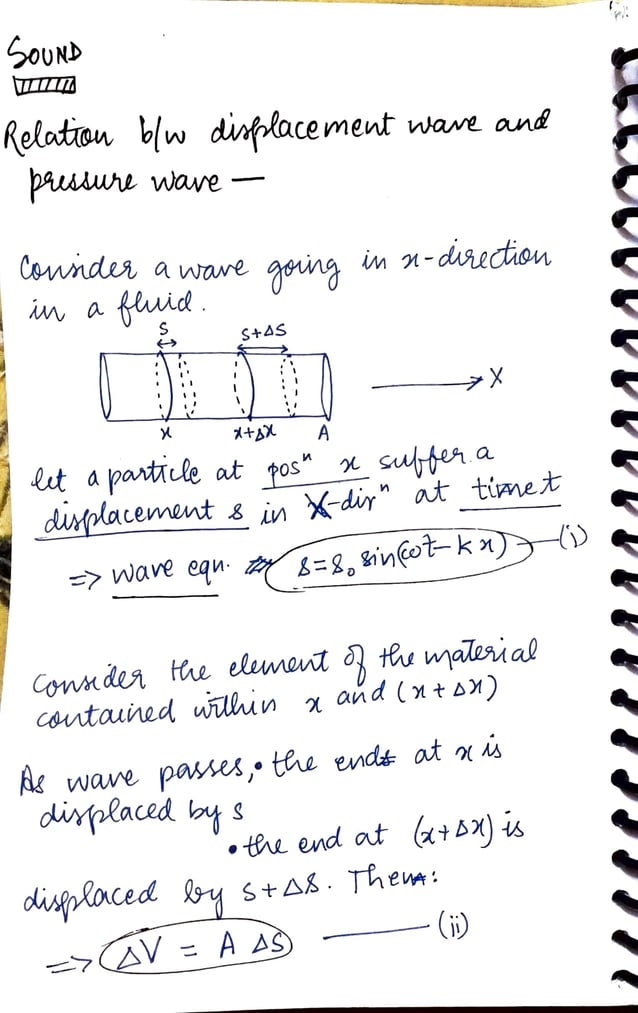 SOUND
Relation b/w displacement wave and
pressure wave —
Consider a wave going in x-direction
in a fluid.
S
S+ΔS
X
x
x+Δx
A
let a particle at posⁿ x suffer a
displacement s in X-dirⁿ at time t
=> wave eqn. s=s₀ sin(ωt-kx) —(i)
Consider the element of the material
contained within x and (x+Δx)
As wave passes, • the ends at x is
displaced by s
• the end at (x+Δx) is
displaced by s+Δs. Then:
=> ΔV = A ΔS —(ii)